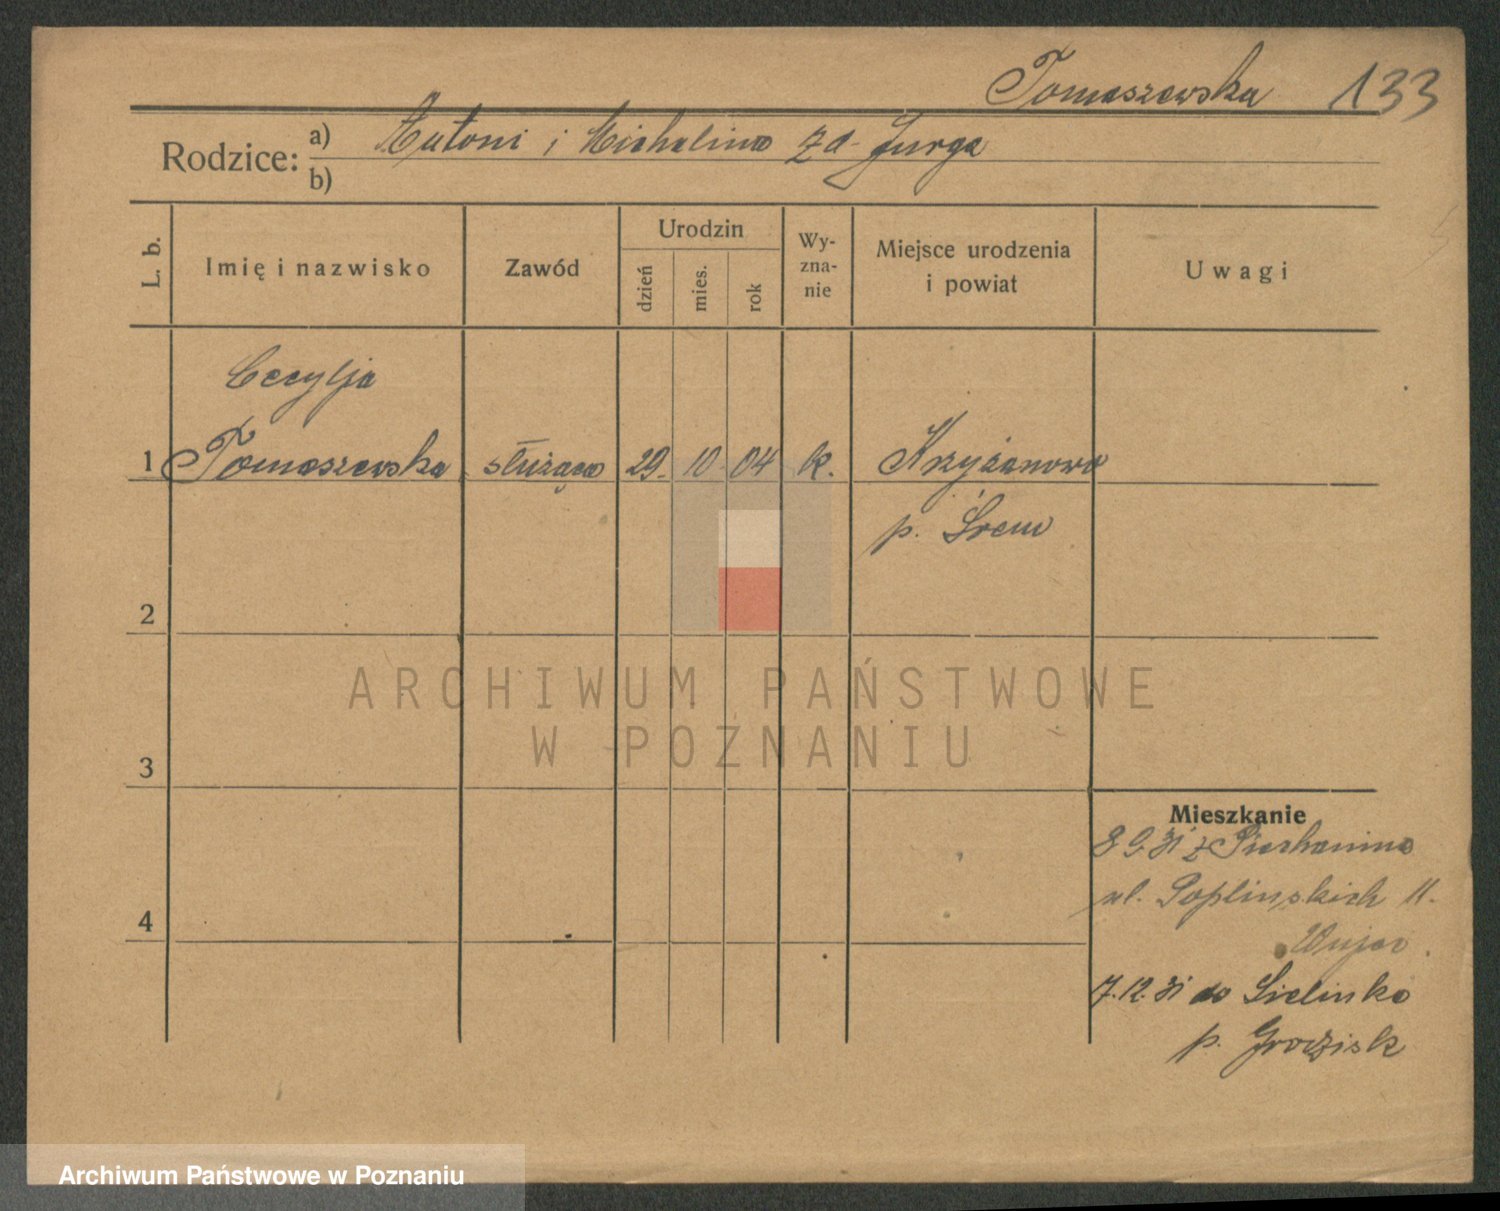 Tomaszewska 133
Rodzice: a) Antoni i Michalina zd. Jurga
b)
L. b.
Imię i nazwisko
Zawód
Urodzin
dzień
mies.
rok
Wy-
zna-
nie
Miejsce urodzenia
i powiat
Uwagi
Cecylja
1 Tomaszewska służąca 29. 10 04 k. Krzyżanowo
p. Śrem
2
3
4
Mieszkanie
8 9. 31 z Piechanina
ul. Poplinskich 11.
7.12.31 do Sielinko
p. Grodzisk
ARCHIWUM PAŃSTWOWE
W POZNANIU
Archiwum Państwowe w Poznaniu